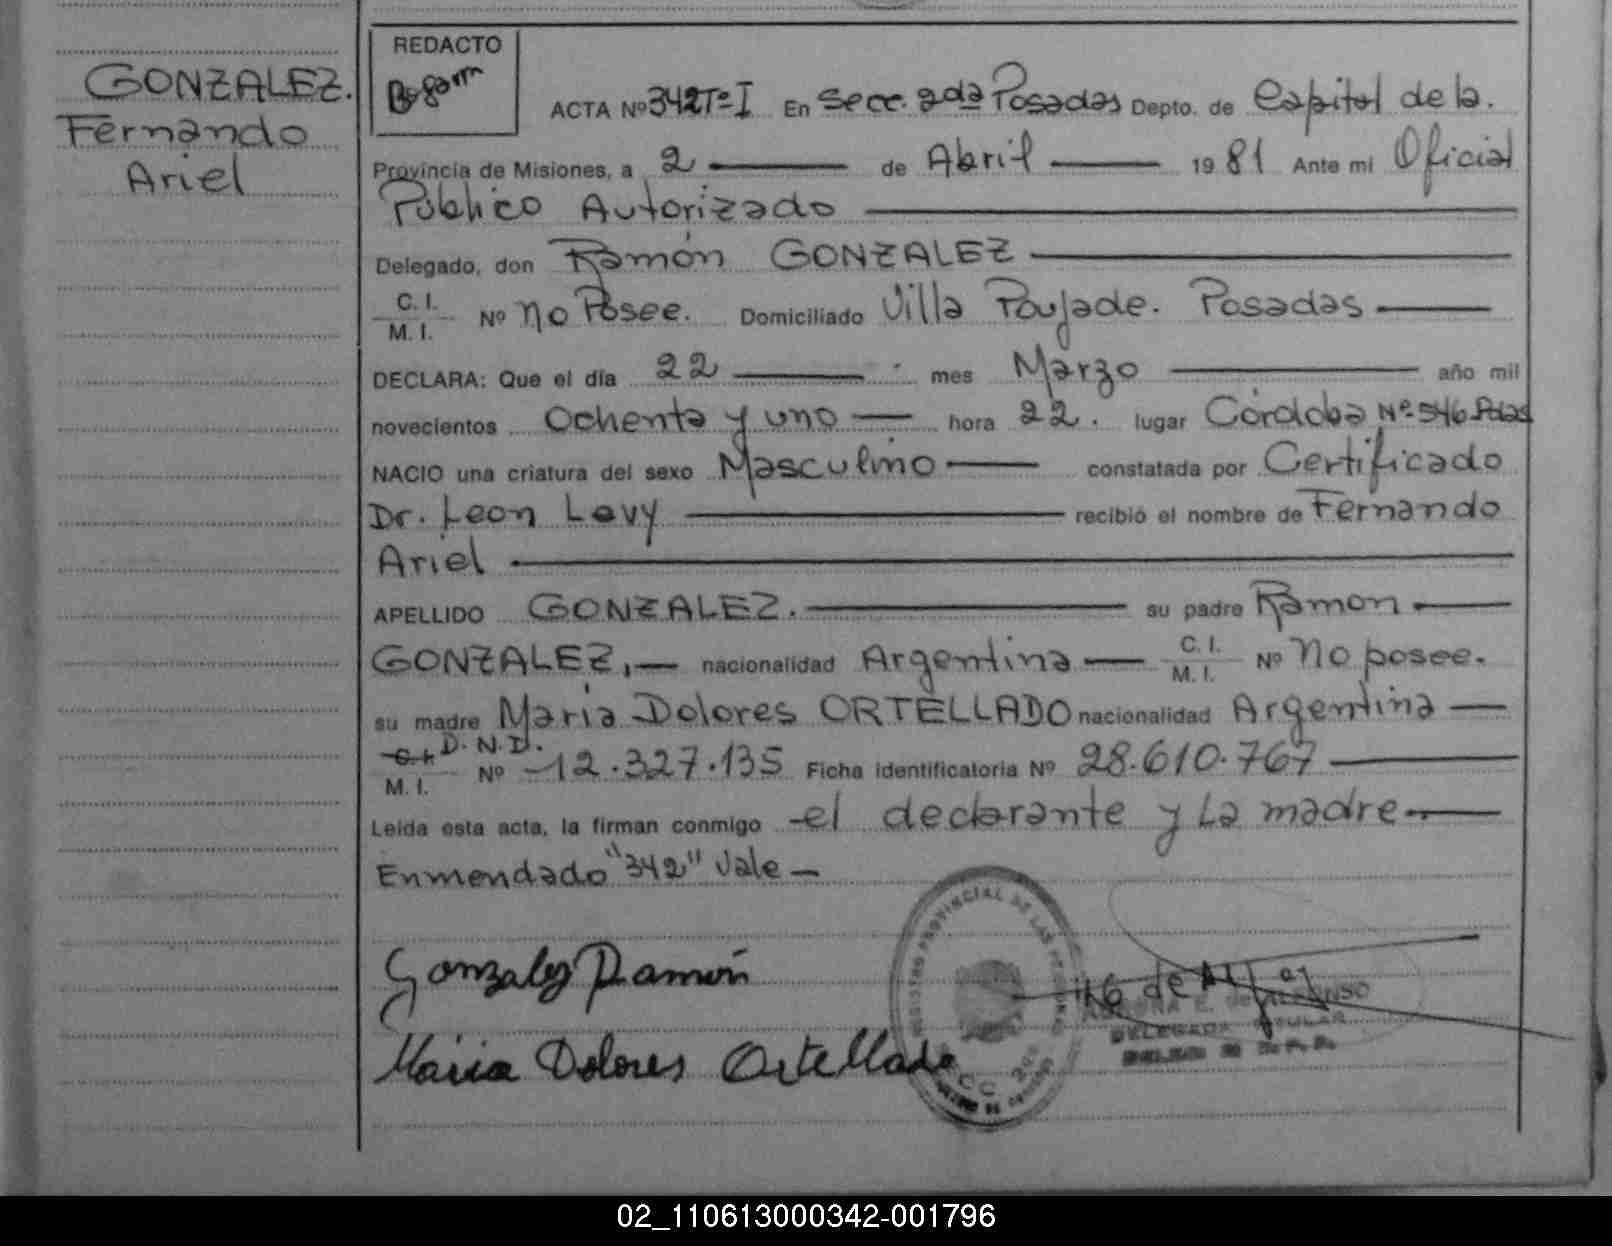 GONZALEZ.
Fernando
Ariel
REDACTO
ACTA Nº 342 Tº I En Secc. 2da Posadas Depto. de Capital de la.
Provincia de Misiones, a 2 de Abril 1981 Ante mi Oficial
Público Autorizado
Delegado, don Ramón GONZALEZ
C. I.
M. I. Nº No Posee. Domiciliado Villa Poujade. Posadas
DECLARA: Que el día 22 mes Marzo año mil
novecientos Ochenta y uno hora 22. lugar Córdoba Nº 546 Pdas
NACIO una criatura del sexo Masculino constatada por Certificado
Dr. Leon Levy recibió el nombre de Fernando
Ariel
APELLIDO GONZALEZ. su padre Ramon
GONZALEZ, nacionalidad Argentina C. I. M. I. Nº No posee.
su madre Maria Dolores ORTELLADO nacionalidad Argentina
D. N. I.
M. I. Nº 12.327.135 Ficha identificatoria Nº 28.610.767
Leída esta acta, la firman conmigo el declarante y La madre
Enmendado "342" Vale
Gonzalez Ramón
Maria Dolores Ortellado
REGISTRO PROVINCIAL DE LAS PERSONAS
SECC. 2da
DELEGADA TITULAR
02_110613000342-001796